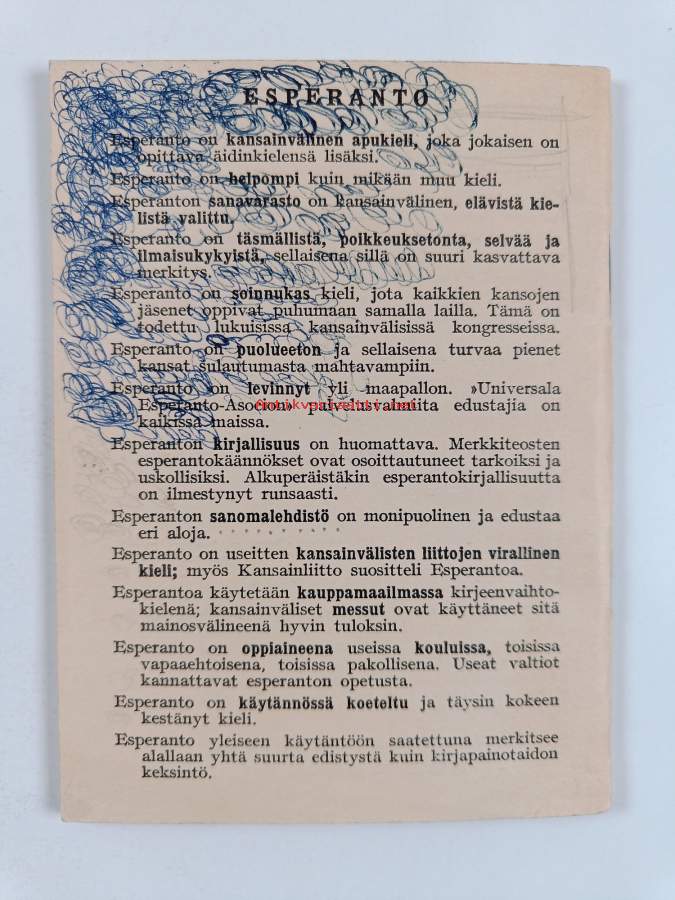 ESPERANTO
Esperanto on kansainvälinen apukieli, joka jokaisen on
opittava äidinkielensä lisäksi.
Esperanto on helpompi kuin mikään muu kieli.
Esperanton sanavarasto on kansainvälinen, elävistä kie-
listä valittu.
Esperanto on täsmällistä, poikkeuksetonta, selvää ja
ilmaisukykyistä, sellaisena sillä on suuri kasvattava
merkitys.
Esperanto on soinnukas kieli, jota kaikkien kansojen
jäsenet oppivat puhumaan samalla lailla. Tämä on
todettu lukuisissa kansainvälisissä kongresseissa.
Esperanto on puolueeton ja sellaisena turvaa pienet
kansat sulautumasta mahtavampiin.
Esperanto on levinnyt yli maapallon. »Universala
Esperanto-Asocion» palvelusvalmiita edustajia on
kaikissa maissa.
Esperanton kirjallisuus on huomattava. Merkkiteosten
esperantokäännökset ovat osoittautuneet tarkoiksi ja
uskollisiksi. Alkuperäistäkin esperantokirjallisuutta
on ilmestynyt runsaasti.
Esperanton sanomalehdistö on monipuolinen ja edustaa
eri aloja.
Esperanto on useitten kansainvälisten liittojen virallinen
kieli; myös Kansainliitto suositteli Esperantoa.
Esperantoa käytetään kauppamaailmassa kirjeenvaihto-
kielenä; kansainväliset messut ovat käyttäneet sitä
mainosvälineenä hyvin tuloksin.
Esperanto on oppiaineena useissa kouluissa, toisissa
vapaaehtoisena, toisissa pakollisena. Useat valtiot
kannattavat esperanton opetusta.
Esperanto on käytännössä koeteltu ja täysin kokeen
kestänyt kieli.
Esperanto yleiseen käytäntöön saatettuna merkitsee
alallaan yhtä suurta edistystä kuin kirjapainotaidon
keksintö.